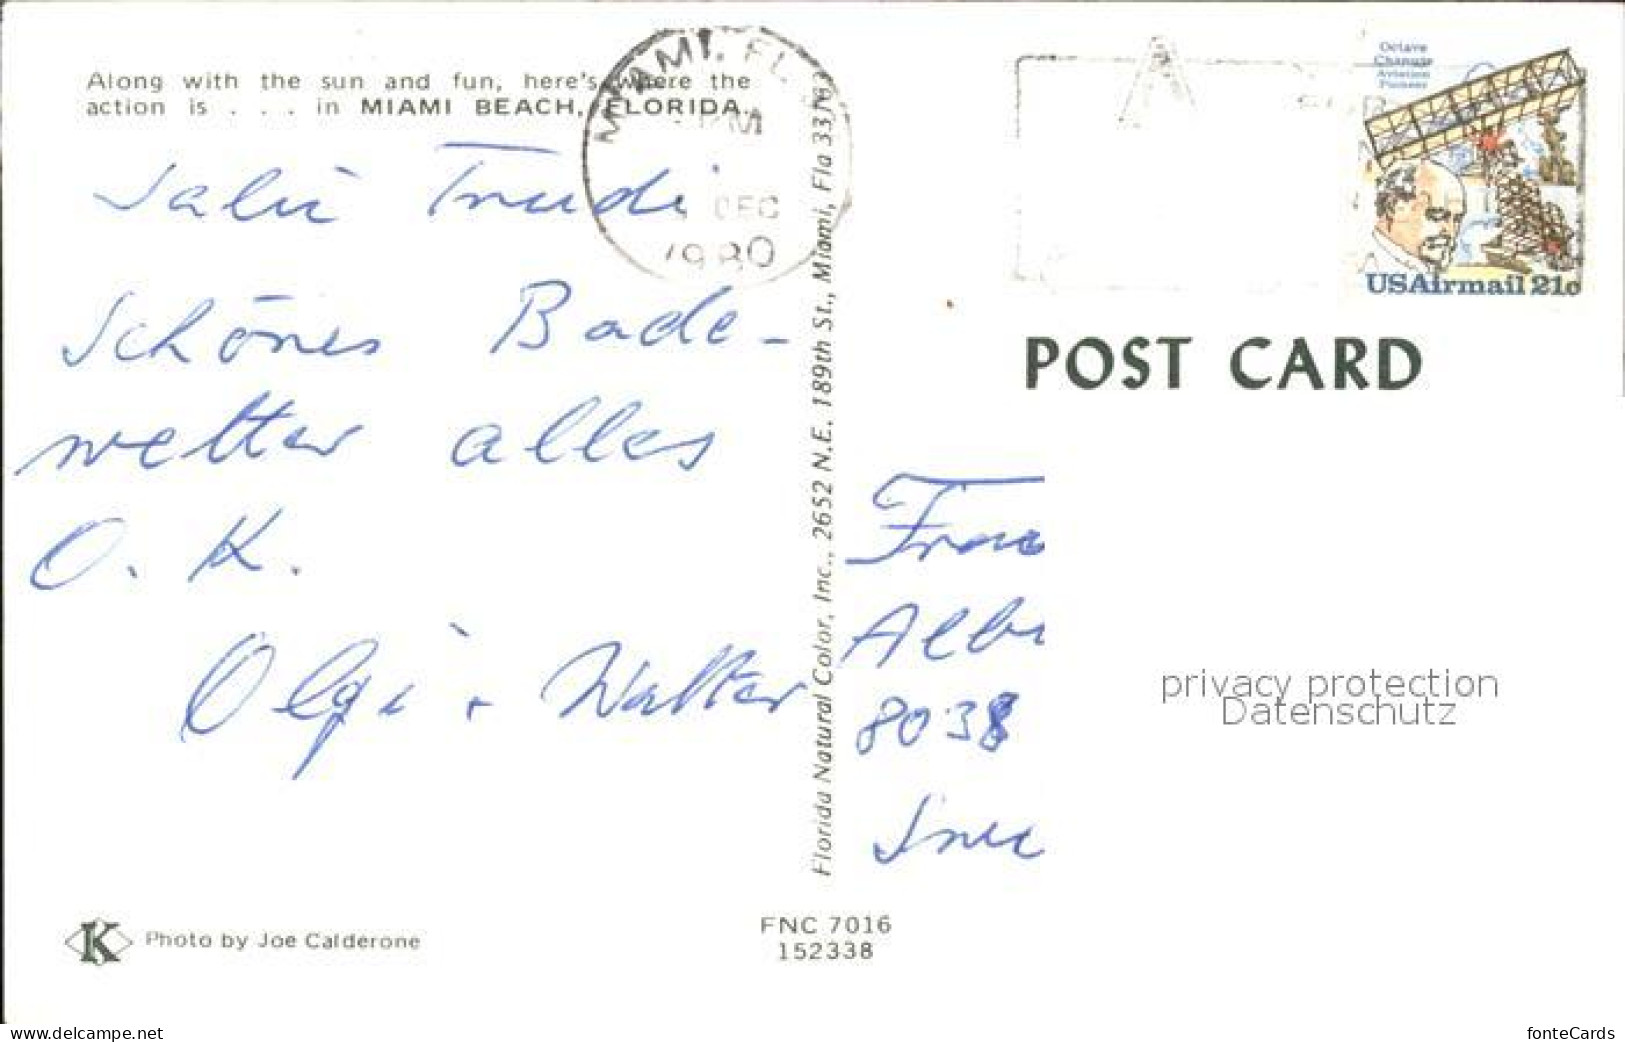 Along with the sun and fun, here's where the
action is . . . in MIAMI BEACH, FLORIDA.
Salü Trudi
Schönes Bade-
wetter alles
O. K.
Olgi + Walter
Photo by Joe Calderone
FNC 7016
152338
Florida Natural Color, Inc., 2652 N.E. 189th St., Miami, Fla 331
MIAMI, FL
PM
DEC
1980
Octave
Chanute
Aviation
Pioneer
USAirmail 21c
POST CARD
Frau
Albi
8038
privacy protection
Datenschutz
www.delcampe.net
fonteCards